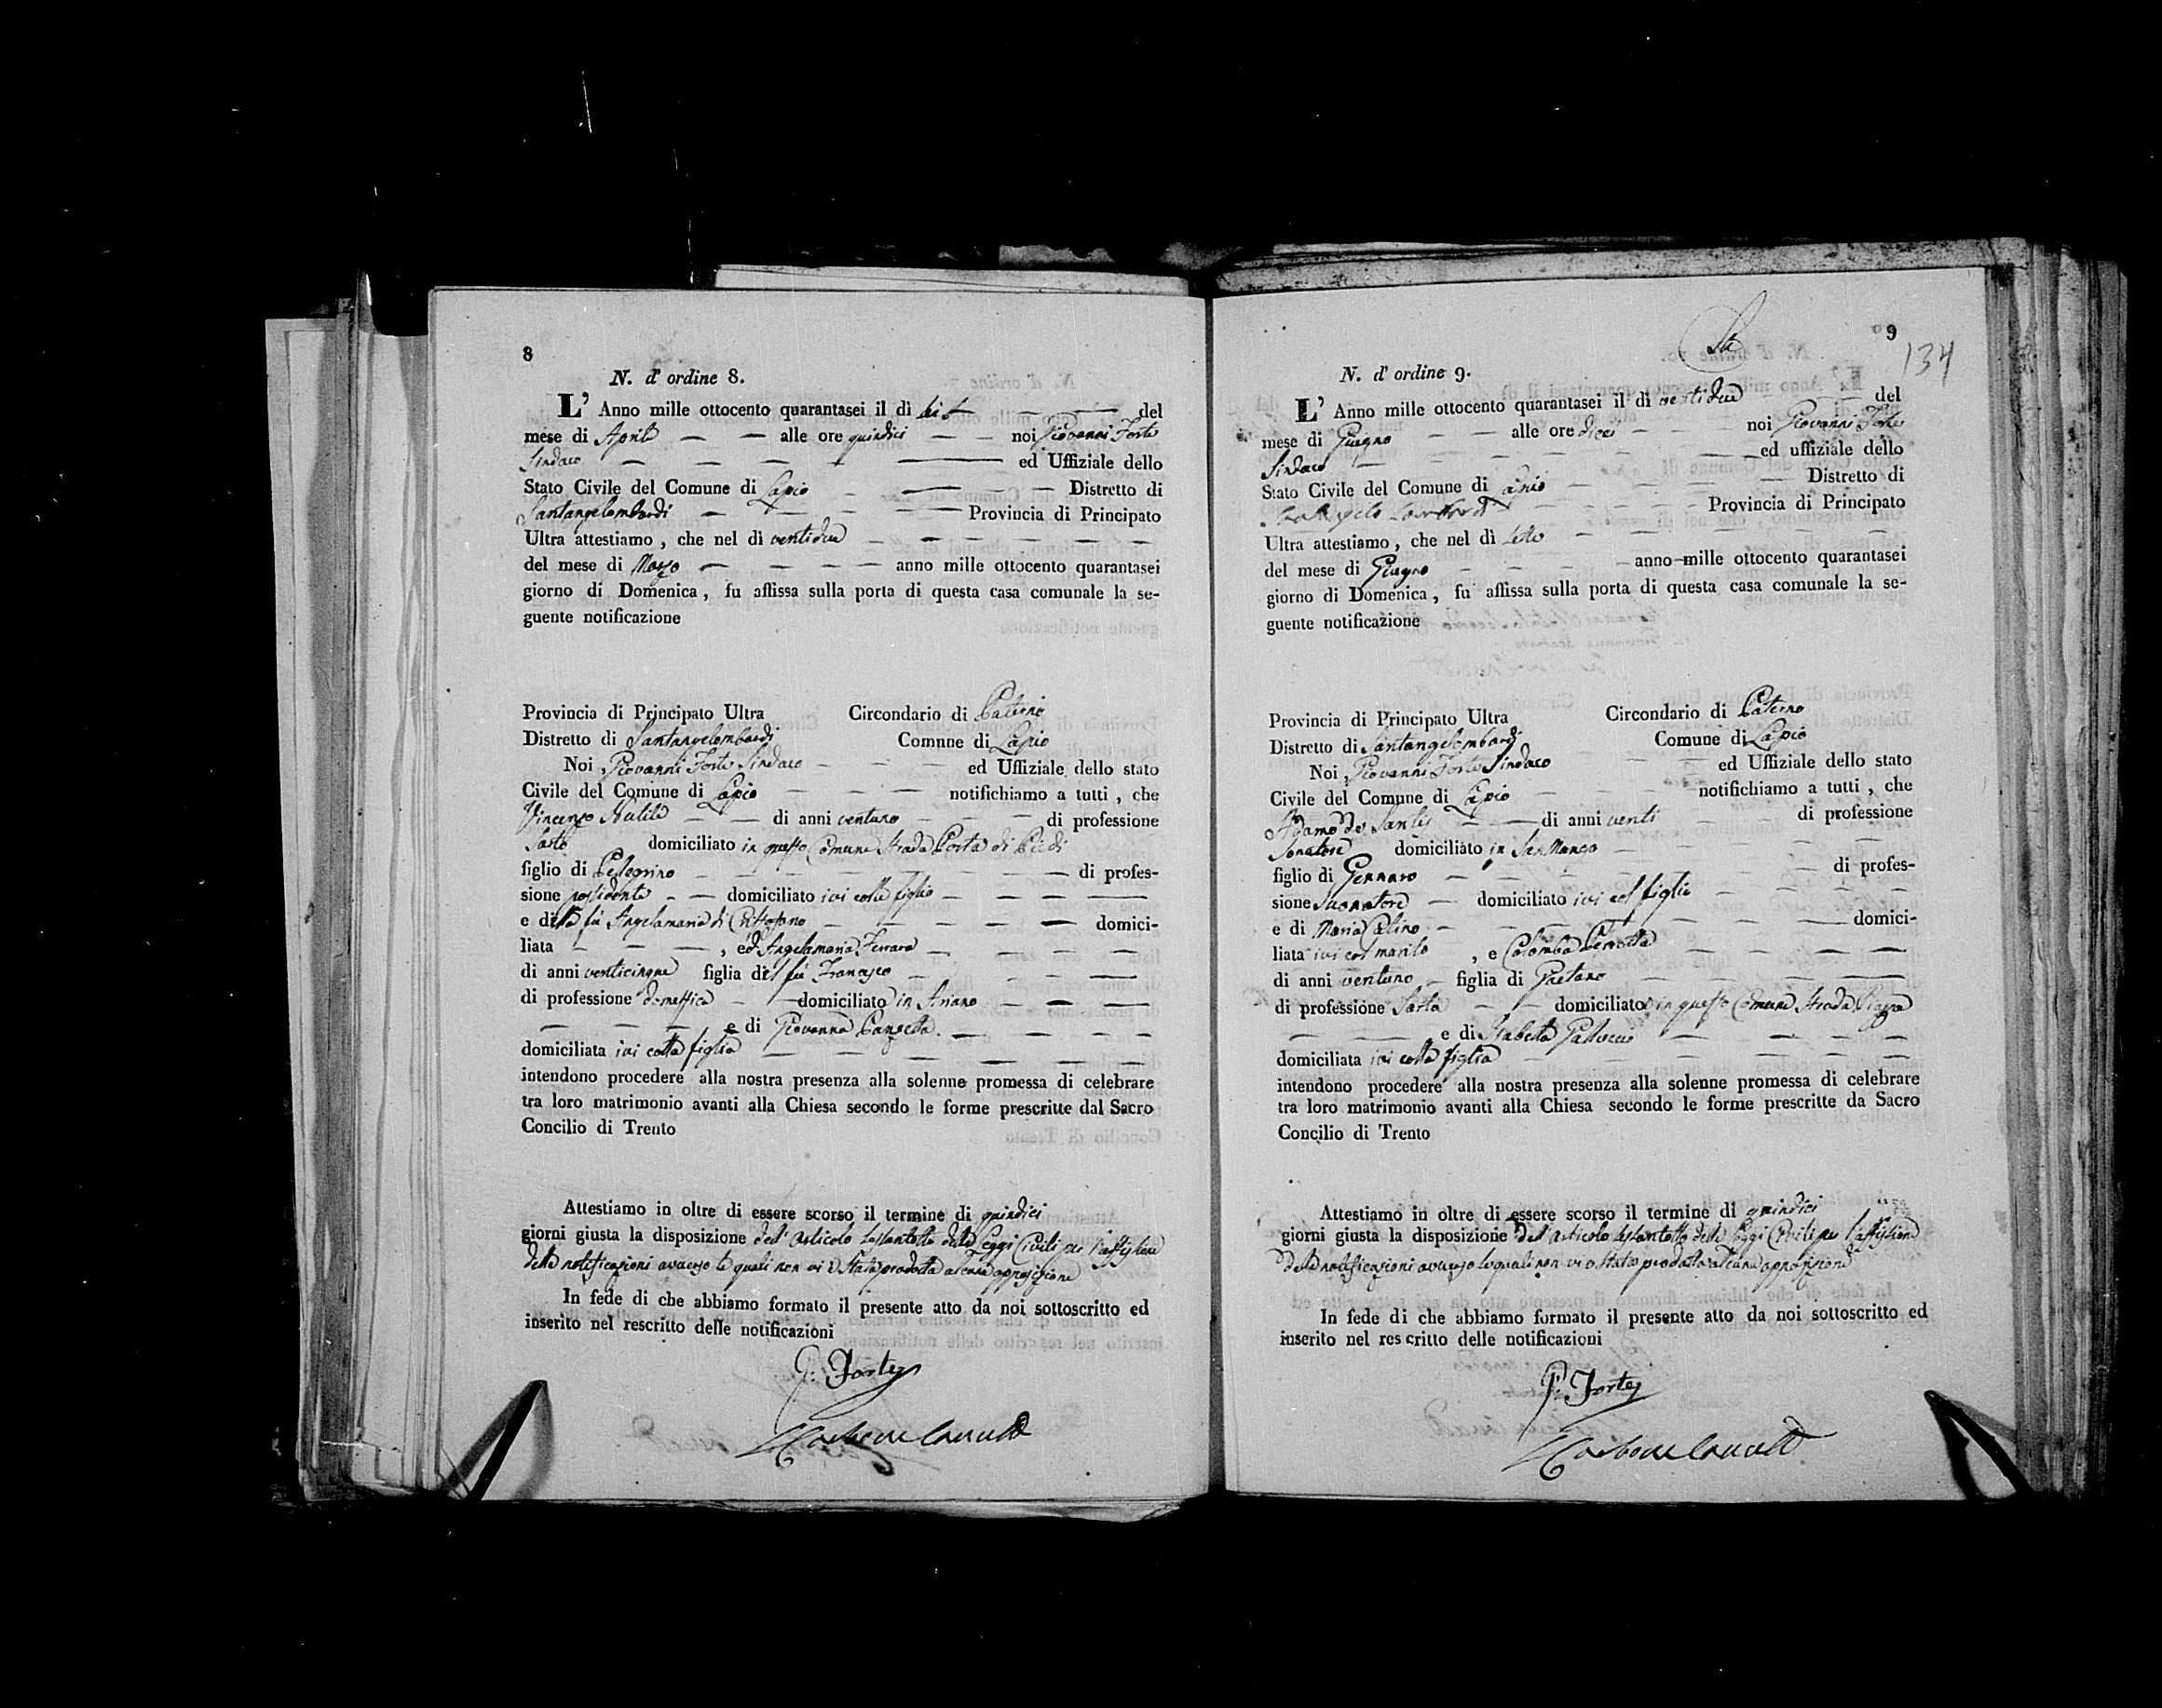 8
N. d' ordine 8.
L' Anno mille ottocento quarantasei il dì sei del
mese di Aprile alle ore quindici noi Giovanni Forte
Sindaco ed Uffiziale dello
Stato Civile del Comune di Lapio Distretto di
Santangelombardi Provincia di Principato
Ultra attestiamo, che nel dì ventidue
del mese di Marzo anno mille ottocento quarantasei
giorno di Domenica, fu affissa sulla porta di questa casa comunale la se-
guente notificazione
Provincia di Principato Ultra Circondario di Paterno
Distretto di Santangelombardi Comune di Lapio
Noi Giovanni Forte Sindaco ed Uffiziale dello stato
Civile del Comune di Lapio notifichiamo a tutti, che
Vincenzo Natile di anni ventuno di professione
Sarto domiciliato in questo Comune Strada Porta di Piedi
figlio di Pellegrino di profes-
sione possidente domiciliato ivi col figlio
e della fù Angelamaria di domici-
liata , ed Angelamaria Ferrara
di anni venticinque figlia del fù Francesco
di professione domestica domiciliato in Ariano
e di Giovanna
domiciliata ivi colla figlia
intendono procedere alla nostra presenza alla solenne promessa di celebrare
tra loro matrimonio avanti alla Chiesa secondo le forme prescritte dal Sacro
Concilio di Trento
Attestiamo in oltre di essere scorso il termine di quindici
giorni giusta la disposizione dell' articolo sessantotto delle Leggi Civili per l'affissione
delle notificazioni avverso le quali non vi è stata prodotta alcuna opposizione
In fede di che abbiamo formato il presente atto da noi sottoscritto ed
inserito nel rescritto delle notificazioni
G: Forte
9
134
N. d' ordine 9.
L' Anno mille ottocento quarantasei il dì ventidue del
mese di Giugno alle ore dieci noi Giovanni Forte
Sindaco ed uffiziale dello
Stato Civile del Comune di Lapio Distretto di
Santangelo Lombardi Provincia di Principato
Ultra attestiamo, che nel dì sette
del mese di Giugno anno mille ottocento quarantasei
giorno di Domenica, fu affissa sulla porta di questa casa comunale la se-
guente notificazione
Provincia di Principato Ultra Circondario di Paterno
Distretto di Santangelombardi Comune di Lapio
Noi Giovanni Forte Sindaco ed Uffiziale dello stato
Civile del Comune di Lapio notifichiamo a tutti, che
Adamo de Santis di anni venti di professione
Sonatore domiciliato in San Mango
figlio di Gennaro di profes-
sione Suonatore domiciliato ivi col figlio
e di Maria domici-
liata ivi col marito , e Colomba Perrotta
di anni ventuno figlia di Gaetano
di professione Sarta domiciliato in questo Comune Strada Piazza
e di Isabella
domiciliata ivi colla figlia
intendono procedere alla nostra presenza alla solenne promessa di celebrare
tra loro matrimonio avanti alla Chiesa secondo le forme prescritte da Sacro
Concilio di Trento
Attestiamo in oltre di essere scorso il termine di quindici
giorni giusta la disposizione dell' articolo sessantotto delle Leggi Civili per l'affissione
delle notificazioni avverso le quali non vi è stata prodotta alcuna opposizione
In fede di che abbiamo formato il presente atto da noi sottoscritto ed
inserito nel rescritto delle notificazioni
G: Forte